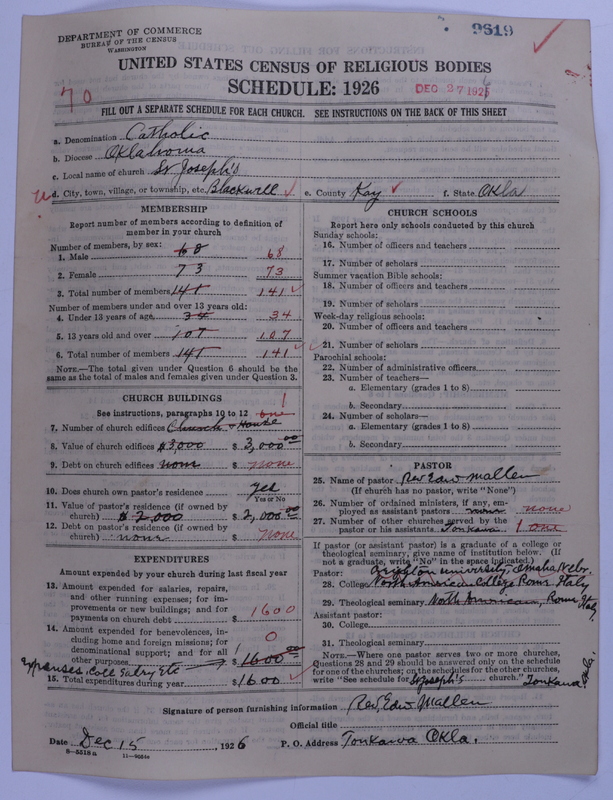 DEPARTMENT OF COMMERCE
BUREAU OF THE CENSUS
WASHINGTON
9619
UNITED STATES CENSUS OF RELIGIOUS BODIES
SCHEDULE: 1926
DEC 27 192
70
FILL OUT A SEPARATE SCHEDULE FOR EACH CHURCH. SEE INSTRUCTIONS ON THE BACK OF THIS SHEET
a. Denomination Catholic
b. Diocese Oklahoma
c. Local name of church St Joseph's
d. City, town, village, or township, etc. Blackwell e. County Kay f. State Okla
MEMBERSHIP
Report number of members according to definition of member in your church
Number of members, by sex:
1. Male 68 68
2. Female 73 73
3. Total number of members 141 141
Number of members under and over 13 years old:
4. Under 13 years of age 34 34
5. 13 years old and over 107 107
6. Total number of members 141 141
NOTE.—The total given under Question 6 should be the same as the total of males and females given under Question 3.
CHURCH BUILDINGS
See instructions, paragraphs 10 to 12 one 1
7. Number of church edifices Church + House
8. Value of church edifices $3,000 $ 3,000.00
9. Debt on church edifices none $ none
10. Does church own pastor's residence yes
Yes or No
11. Value of pastor's residence (if owned by church) $2,000 $ 2,000.00
12. Debt on pastor's residence (if owned by church) none $ none
EXPENDITURES
Amount expended by your church during last fiscal year
13. Amount expended for salaries, repairs, and other running expenses; for improvements or new buildings; and for payments on church debt $ 1600
14. Amount expended for benevolences, including home and foreign missions; for denominational support; and for all other purposes 0 $ 1600.00
expenses, Coll Salry Etc
15. Total expenditures during year $ 1600
CHURCH SCHOOLS
Report here only schools conducted by this church
Sunday schools:
16. Number of officers and teachers
17. Number of scholars
Summer vacation Bible schools:
18. Number of officers and teachers
19. Number of scholars
Week-day religious schools:
20. Number of officers and teachers
21. Number of scholars
Parochial schools:
22. Number of administrative officers
23. Number of teachers—
a. Elementary (grades 1 to 8)
b. Secondary
24. Number of scholars—
a. Elementary (grades 1 to 8)
b. Secondary
PASTOR
25. Name of pastor Rev Edw Mallen
(If church has no pastor, write "None")
26. Number of ordained ministers, if any, employed as assistant pastors none none
27. Number of other churches served by the pastor or his assistants Tonkawa 1 one
If pastor (or assistant pastor) is a graduate of a college or theological seminary, give name of institution below. (If not a graduate, write "No" in the space indicated.)
Pastor: Creighton University, Omaha, Nebr.
28. College North American College Rome Italy
29. Theological seminary North American, Rome Italy
Assistant pastor:
30. College
31. Theological seminary
NOTE.—Where one pastor serves two or more churches, Questions 28 and 29 should be answered only on the schedule for one of the churches; on the schedules for the other churches, write "See schedule for St Joseph's church." Tonkawa Okla.
Signature of person furnishing information Rev. Edw Mallen
Official title
Date Dec 15, 1926 P. O. Address Tonkawa Okla.
8—5518 a 11—9554a